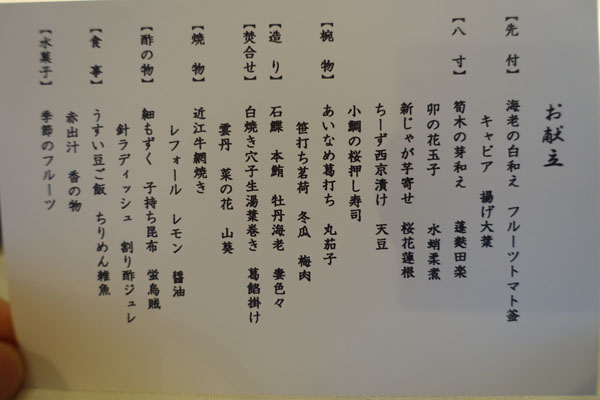 お献立
【先 付】 海老の白和え フルーツトマト釜
キャビア 揚げ大葉
【八 寸】 筍木の芽和え 蓬麩田楽
卯の花玉子 水蛸柔煮
新じゃが芋寄せ 桜花蓮根
ちーず西京漬け 天豆
小鯛の桜押し寿司
【椀 物】 あいなめ葛打ち 丸茄子
笹打ち茗荷 冬瓜 梅肉
【造 り】 石鰈 本鮪 牡丹海老 妻色々
【焚合せ】 白焼き穴子生湯葉巻き 葛餡掛け
雲丹 菜の花 山葵
【焼 物】 近江牛網焼き
レフォール レモン 醤油
【酢の物】 細もずく 子持ち昆布 蛍烏賊
針ラディッシュ 割り酢ジュレ
【食 事】 うすい豆ご飯 ちりめん雑魚
赤出汁 香の物
【水菓子】 季節のフルーツ